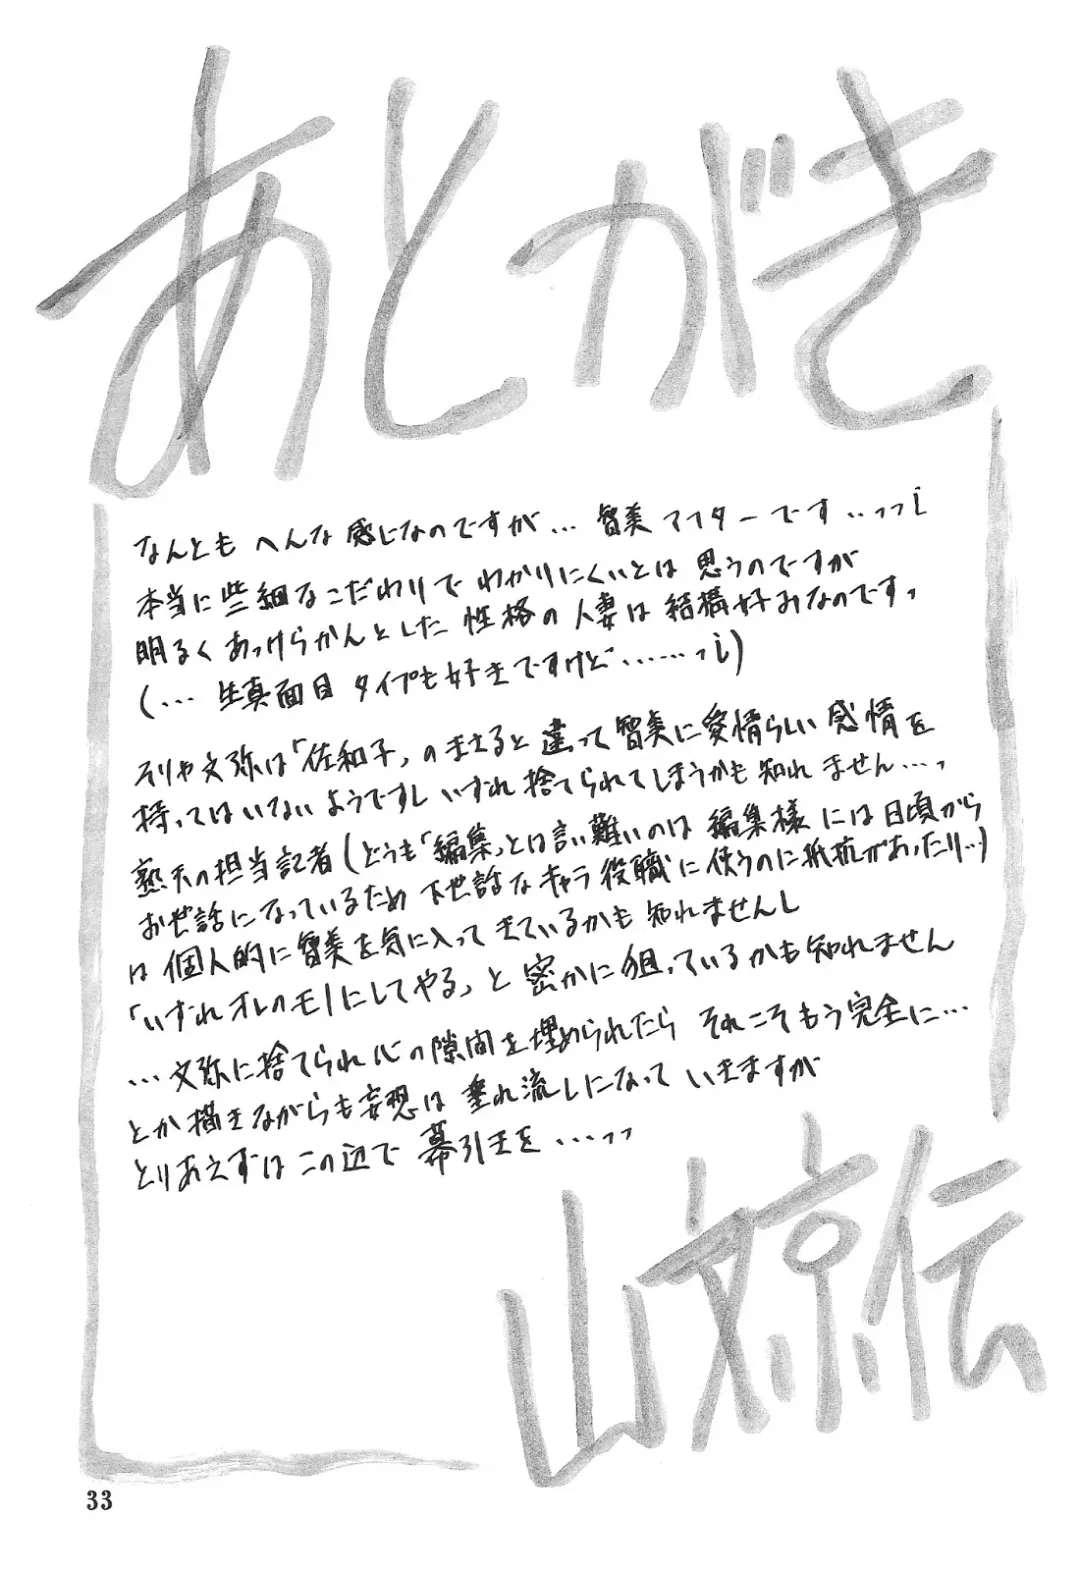 あとがき
なんとも へんな 感じなのですが… 智美 アフター です…っっ!
本当に些細なこだわりで わかりにくいとは 思うのですが
明るく あっけらかんとした 性格の 人妻は 結構好みなのです。
(… 生真面目 タイプも好きですけど……っ!)
そりゃ文弥は「佐和子」のまさると 違って 智美に愛情らしい 感情を
持ってはいないようですし いずれ 捨てられてしまうかも 知れません…。
熟天の担当記者(どうも「編集」とは言い難いのは 編集様 には 日頃から
お世話になっているため 下世話な キャラ 役職に 使うのに抵抗があったり…)
は 個人的に 智美を気に入って きているかも 知れませんし
「いずれ オレのモノにしてやる」と 密かに狙っているかも知れません
… 文弥に捨てられ 心の隙間を埋められたら それこそもう完全に…
とか描きながらも妄想は 垂れ流しになって いきますが
とりあえずは この辺で 幕引きを …っっ
山文京伝
33